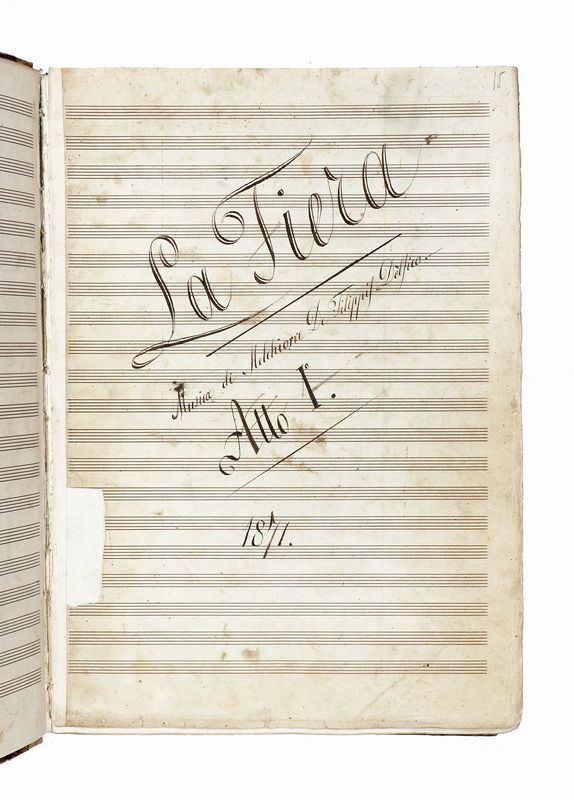 15
La Fiera
Musica di Melchiorre De Filippis Delfico.
Atto I.
1871.